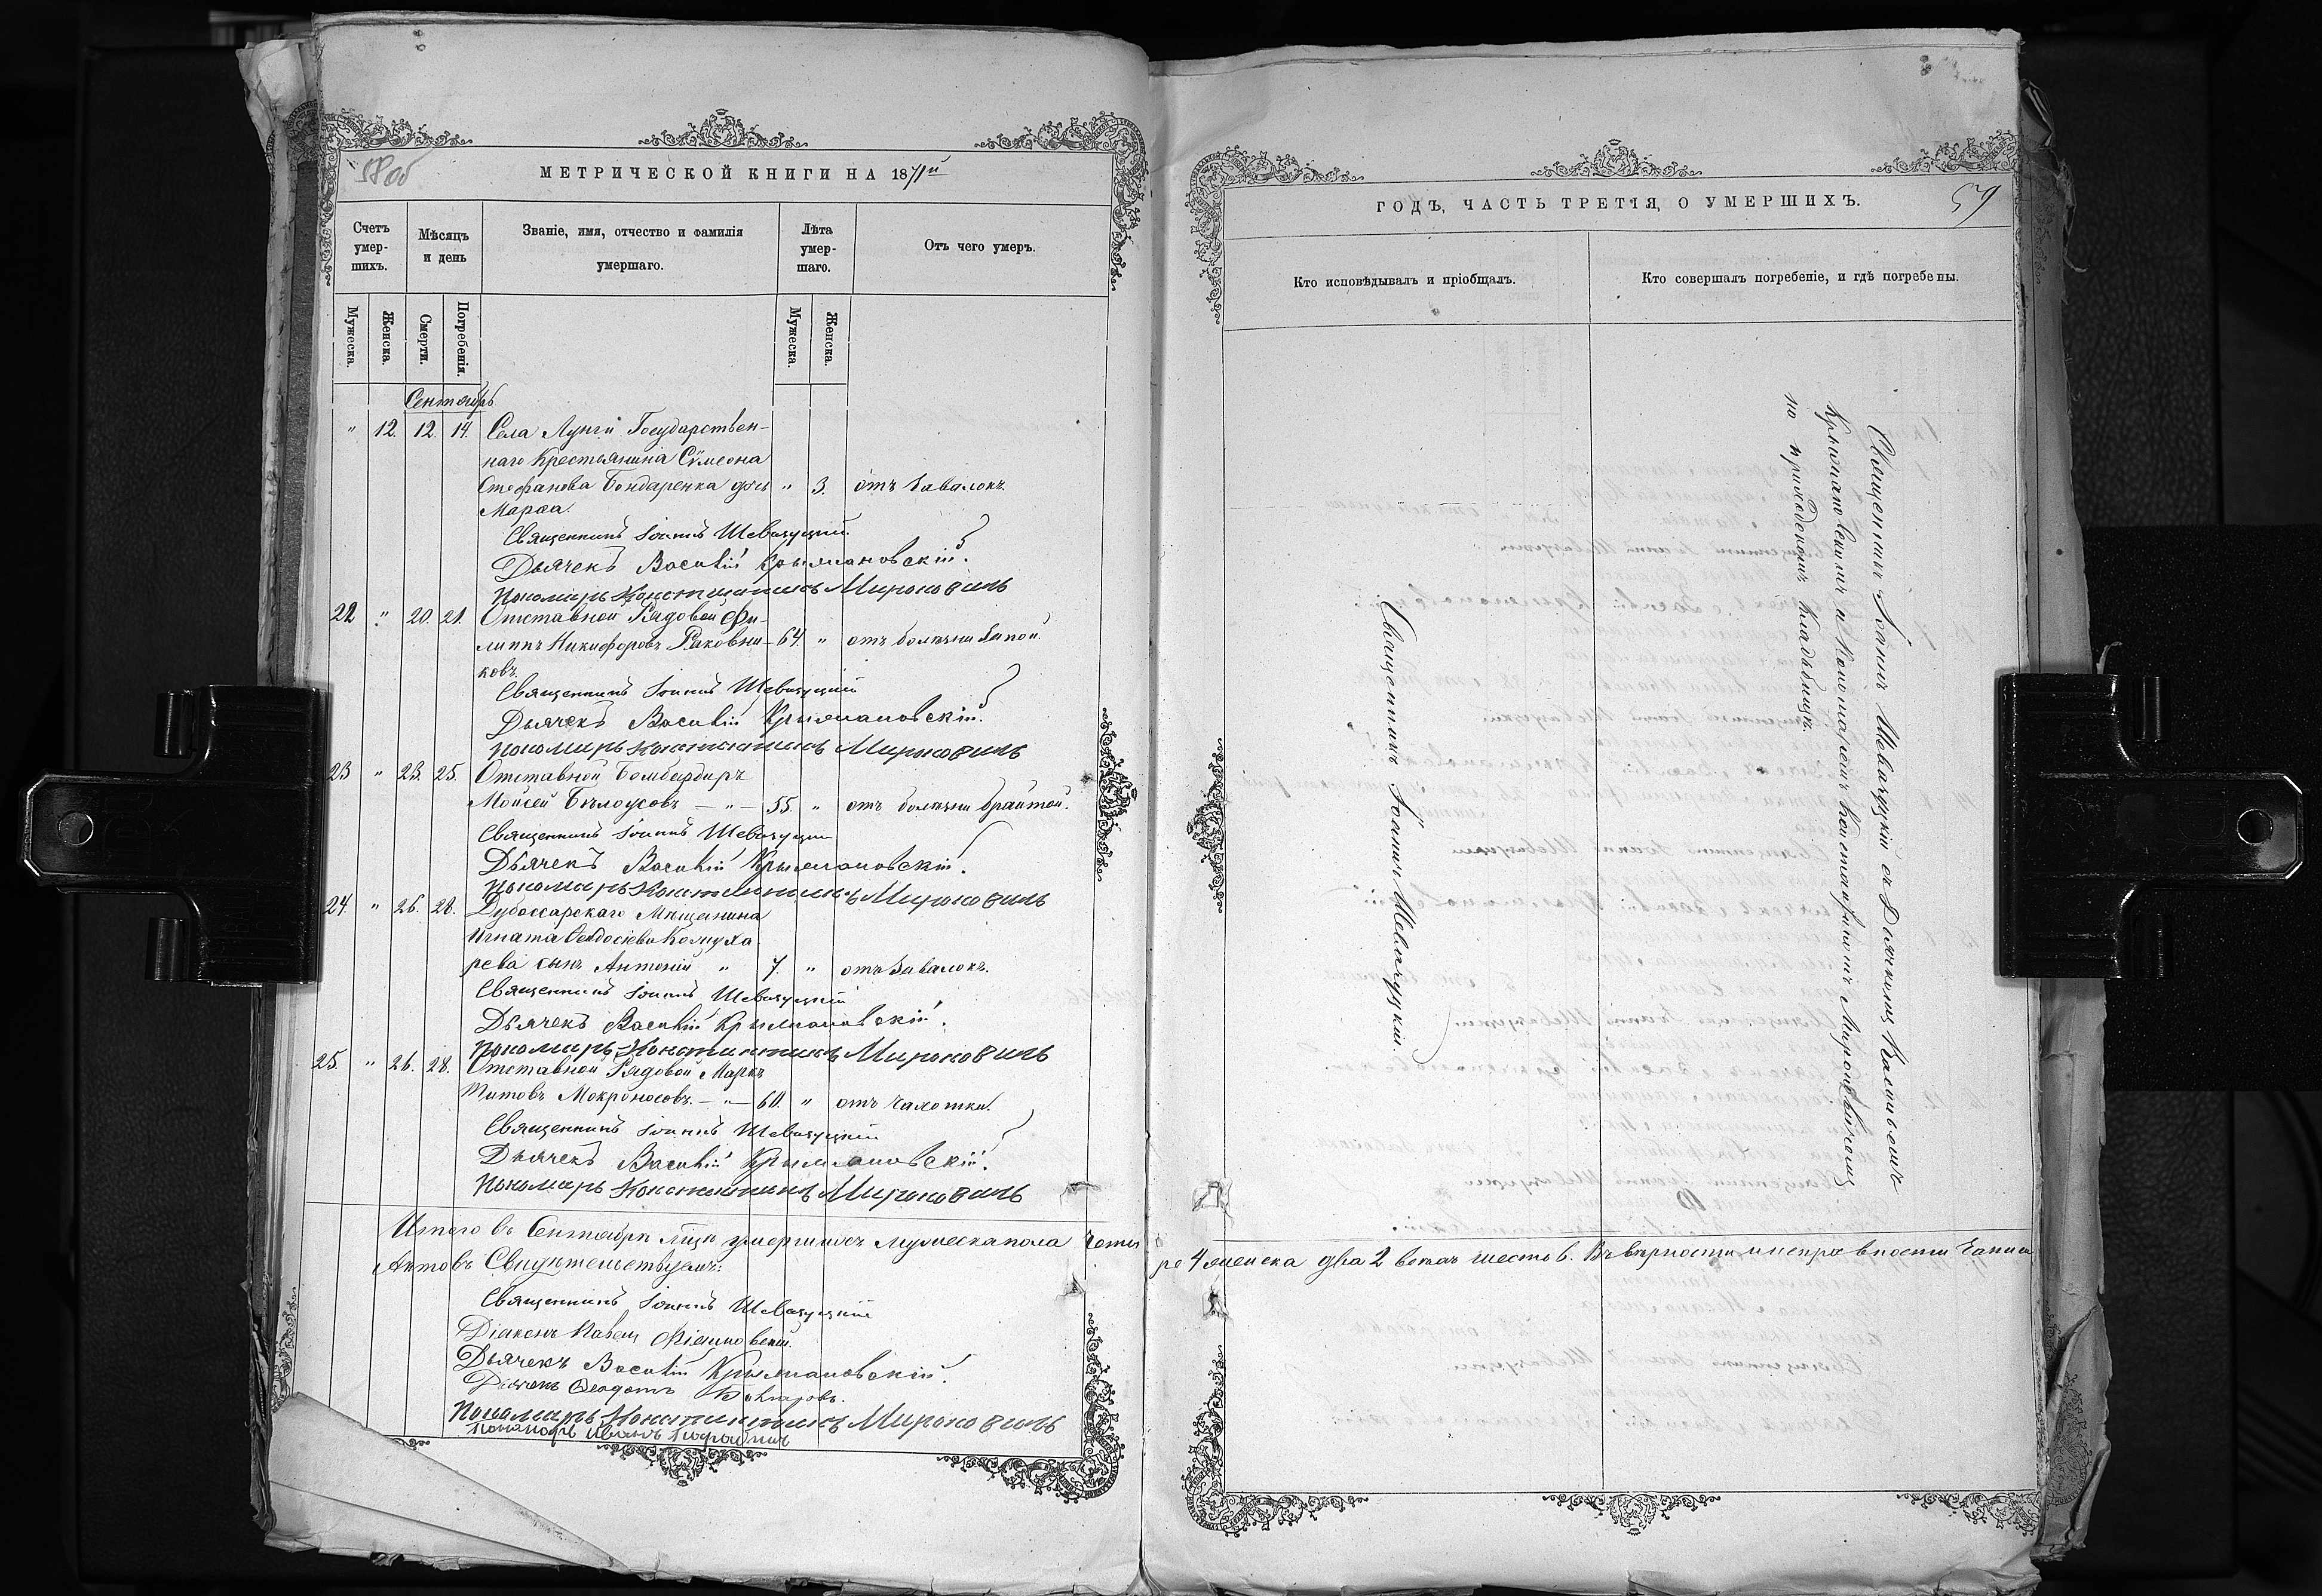 58об
МЕТРИЧЕСКОЙ КНИГИ НА 1871й
Счетъ умер-шихъ.
Мѣсяцъ и день
Званіе, имя, отчество и фамилія умершаго.
Лѣта умер-шаго.
Отъ чего умеръ.
Мужеска.
Женска.
Смерти.
Погребенія.
Мужеска.
Женска.
Сентябрь
" 12. 12. 14. Села Лунги Государствен-
наго Крестьянина Сѵмеона
Стефанова Бондаренка дочь " 3. отъ завалокъ.
Марѳа.
Священникъ Іоаннъ Шевагуцкій
Дьячекъ Василій Крыжановскій.
Пономарь Константинъ Мироновичь
22 " 20. 21. Отставной Рядовой Фи-
липпъ Никифоровъ Раковни- 64. " отъ болѣзни
ковъ.
Священникъ Іоаннъ Шевагуцкій
Дьячекъ Василій Крыжановскій.
Пономарь Константинъ Мироновичь
23 " 23. 25. Отставной Бомбардиръ
Мойсей Бѣлоусовъ — " — 55. " отъ болѣзни
Священникъ Іоаннъ Шевагуцкій
Дьячекъ Василій Крыжановскій.
Пономарь Константинъ Мироновичь
24. " 26. 28. Дубоссарскаго Мѣщанина
Игната Ѳеодосіева
рева сынъ Антоній " 7. " отъ завалокъ.
Священникъ Іоаннъ Шевагуцкій
Дьячекъ Василій Крыжановскій.
Пономарь Константинъ Мироновичь
25. " 26. 28. Отставной Рядовой Маркъ
Титовъ Мокроносовъ. — " — 60. " отъ чахотки.
Священникъ Іоаннъ Шевагуцкій
Дьячекъ Василій Крыжановскій.
Пономарь Константинъ Мироновичь
Итого въ Сентябрѣ мцѣ умершихъ мужеска пола четы
Актовъ Свидѣтельствуемъ:
Священникъ Іоаннъ Шевагуцкій
Діаконъ Павелъ
Дьячекъ Василій Крыжановскій.
Дьячекъ Ѳеодотъ
Пономарь Константинъ Мироновичь
Пономарь Иванъ
59
ГОДЪ, ЧАСТЬ ТРЕТІЯ, О УМЕРШИХЪ.
Кто исповѣдывалъ и пріобщалъ.
Кто совершалъ погребеніе, и гдѣ погребены.
Священникъ Іоаннъ Шевагуцкій.
Священникъ Іоаннъ Шевагуцкій съ Дьячкомъ Василіемъ
Крыжановскимъ и Пономаремъ Константиномъ Мироновичемъ
на приходскомъ кладбищѣ.
ре 4 женска два 2 всѣхъ шесть 6. Въ вѣрности и исправности